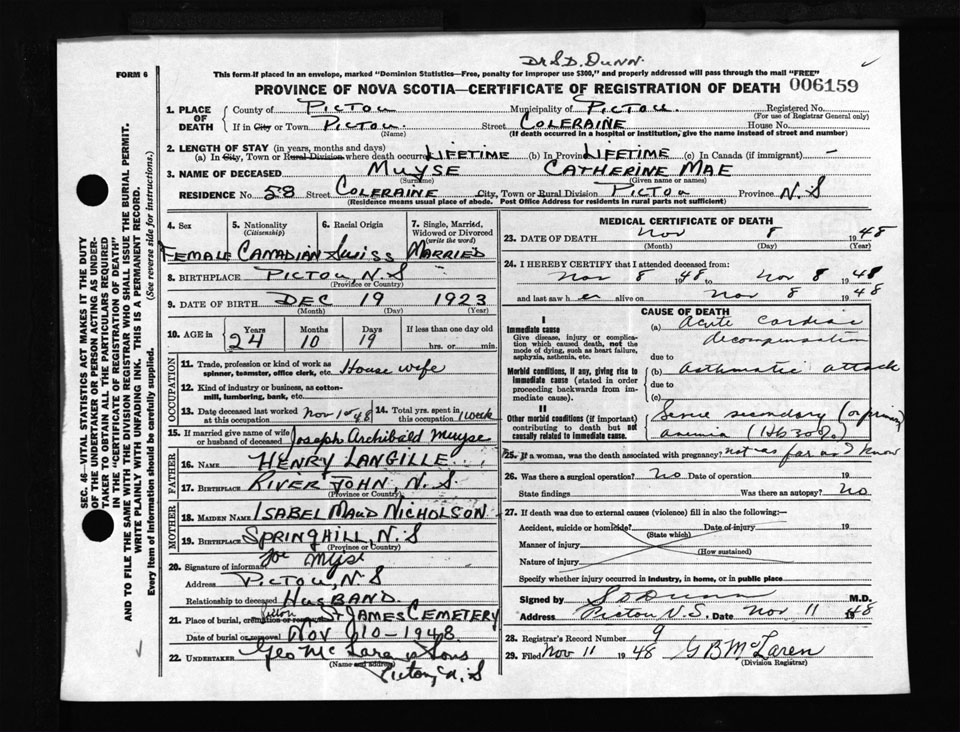 Dr S. D. Dunn.
FORM 6
This form if placed in an envelope, marked "Dominion Statistics—Free, penalty for improper use $300," and properly addressed will pass through the mail "FREE"
PROVINCE OF NOVA SCOTIA—CERTIFICATE OF REGISTRATION OF DEATH 006159
1. PLACE OF DEATH
County of Pictou Municipality of Pictou. Registered No.
(For use of Registrar General only)
If in City or Town Pictou. Street COLERAINE House No.
(Name) (If death occurred in a hospital or institution, give the name instead of street and number)
2. LENGTH OF STAY (in years, months and days)
(a) In City, Town or Rural Division where death occurred LIFETIME (b) In Province LIFETIME (c) In Canada (if immigrant) —
3. NAME OF DECEASED MUYSE CATHERINE MAE
(Surname) (Given name or names)
RESIDENCE No. 58 Street COLERAINE City, Town or Rural Division PICTOU Province N.S
(Residence means usual place of abode. Post Office Address for residents in rural parts not sufficient)
4. Sex
5. Nationality (Citizenship)
6. Racial Origin
7. Single, Married, Widowed or Divorced (write the word)
FEMALE CANADIAN Swiss MARRIED
8. BIRTHPLACE PICTOU, N.S
(Province or Country)
9. DATE OF BIRTH DEC 19 1923
(Month) (Day) (Year)
10. AGE in Years Months Days If less than one day old
24 10 19 hrs. or min.
OCCUPATION
11. Trade, profession or kind of work as spinner, teamster, office clerk, etc. House wife
12. Kind of industry or business, as cotton-mill, lumbering, bank, etc.
13. Date deceased last worked at this occupation Nov 1st 48
14. Total yrs. spent in this occupation 1 week
15. If married give name of wife or husband of deceased Joseph Archibald Muyse
FATHER
16. NAME HENRY LANGILLE
17. BIRTHPLACE RIVER JOHN, N.S.
(Province or Country)
MOTHER
18. MAIDEN NAME ISABEL MAUD NICHOLSON
19. BIRTHPLACE SPRINGHILL, N.S
(Province or Country)
20. Signature of informant Joe Myse
Address PICTOU, N.S
Relationship to deceased HUSBAND.
21. Place of burial, cremation or removal Pictou St JAMES CEMETERY
Date of burial or removal NOV 10-1948.
22. UNDERTAKER Geo McLaren & Sons
(Name and address) Pictou, N.S
MEDICAL CERTIFICATE OF DEATH
23. DATE OF DEATH Nov 8 1948
(Month) (Day) (Year)
24. I HEREBY CERTIFY that I attended deceased from:
Nov 8 1948 Nov 8 1948
and last saw h er alive on Nov 8 1948
CAUSE OF DEATH
I
Immediate cause
Give disease, injury or complication which caused death, not the mode of dying, such as heart failure, asphyxia, asthenia, etc.
(a) Acute cardiac decompensation
due to
Morbid conditions, if any, giving rise to immediate cause (stated in order proceeding backwards from immediate cause).
(b) asthmatic attack
due to
(c)
II
Other morbid conditions (if important) contributing to death but not causally related to immediate cause.
Severe secondary (or primary) anemia (Hb 30%)
25. If a woman, was the death associated with pregnancy? not as far as I know
26. Was there a surgical operation? No Date of operation
State findings Was there an autopsy? No
27. If death was due to external causes (violence) fill in also the following:—
Accident, suicide or homicide? Date of injury 19
(State which)
Manner of injury
(How sustained)
Nature of injury
Specify whether injury occurred in industry, in home, or in public place
Signed by S D Dunn M.D.
Address Pictou N.S. Date Nov 11 1948
28. Registrar's Record Number 9
29. Filed Nov 11 1948 G B McLaren
(Division Registrar)
SEC. 46—VITAL STATISTICS ACT MAKES IT THE DUTY
OF THE UNDERTAKER OR PERSON ACTING AS UNDERTAKER TO OBTAIN ALL THE PARTICULARS REQUIRED
IN THE "CERTIFICATE OF REGISTRATION OF DEATH"
AND TO FILE THE SAME WITH THE DIVISION REGISTRAR WHO SHALL ISSUE THE BURIAL PERMIT.
WRITE PLAINLY WITH UNFADING INK. THIS IS A PERMANENT RECORD.
Every item of information should be carefully supplied. (See reverse side for instructions.)